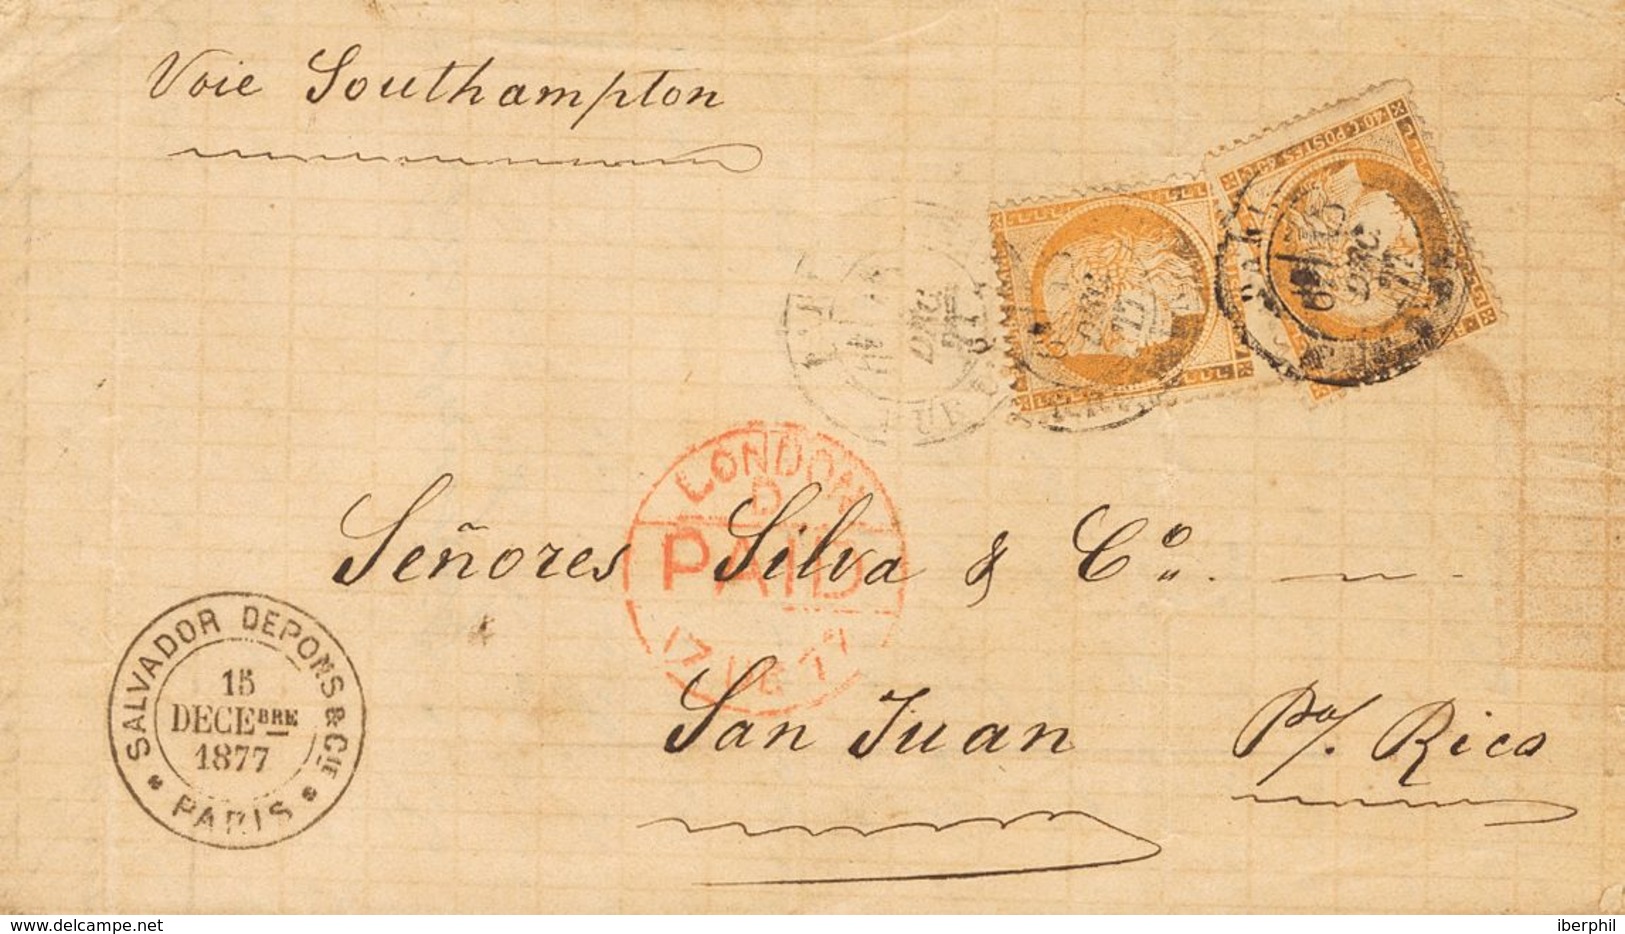 Voie Southampton
40·C·POSTES·40·C·
PARIS
DEC
77
LONDON
D
PAID
17 DE 77
Señores Silva & Cº.
San Juan Pto/. Rico
SALVADOR DEPONS & Cie
15
DECEBRE
1877
* PARIS *
www.delcampe.net
iberphil